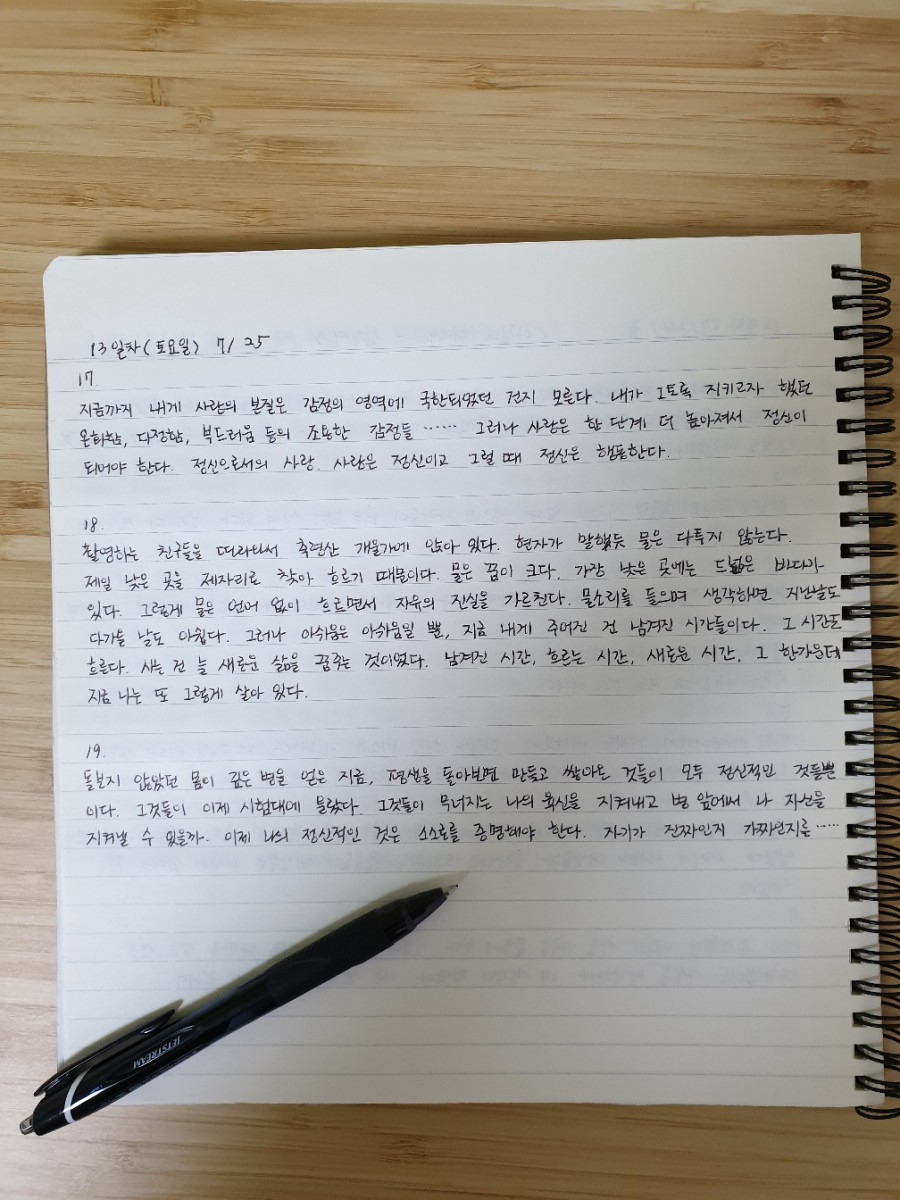 13일차(토요일) 7/25
17.
지금까지 내게 사랑의 본질은 감정의 영역에 국한되었던 건지 모른다. 내가 그토록 지키고자 했던
온화함, 다정함, 부드러움 등의 조용한 감정들 …… 그러나 사랑은 한 단계 더 높아져서 정신이
되어야 한다. 정신으로서의 사랑. 사랑은 정신이고 그럴 때 정신은 행동한다.
18.
촬영하는 친구들을 따라와서 축령산 개울가에 앉아 있다. 현자가 말했듯 물은 다투지 않는다.
제일 낮은 곳을 제자리로 찾아 흐르기 때문이다. 물은 꿈이 크다. 가장 낮은 곳에는 드넓은 바다가
있다. 그렇게 물은 언어 없이 흐르면서 자유의 진실을 가르친다. 물소리를 들으며 생각하면 지난날도
다가올 날도 아쉽다. 그러나 아쉬움은 아쉬움일 뿐, 지금 내게 주어진 건 남겨진 시간들이다. 그 시간도
흐른다. 사는 건 늘 새로운 삶을 꿈꾸는 것이었다. 남겨진 시간, 흐르는 시간, 새로운 시간, 그 한가운데
지금 나는 또 그렇게 살아 있다.
19.
돌보지 않았던 몸이 깊은 병을 얻은 지금, 평생을 돌아보면 만들고 쌓아온 것들이 모두 정신적인 것들뿐
이다. 그것들이 이제 시험대에 올랐다. 그것들이 무너지는 나의 육신을 지켜내고 병 앞에서 나 자신을
지켜낼 수 있을까. 이제 나의 정신적인 것은 스스로를 증명해야 한다. 자기가 진짜인지 가짜인지를……
JETSTREAM